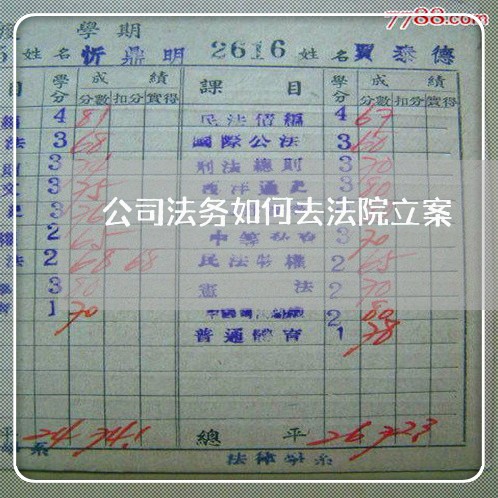 7788.com
學期
姓名 忻鼎明 2616 姓名 賈泰德
目 學分 成績 課目 學分 成績
分數 扣分 實得 分數 扣分 實得
4 81 民法債編 4 67
法 3 68 國際公法 3 60
3 刑法總則 3 70
3 75 西洋通史 3 80
公司法务如何去法院立案
2 65 3 70
法 2 68 68 民法物權 2 65
3 80 憲法 2 70
1 70 2 80
普通體育 1 78
平 24 74.1 總平 26 72.3
法律學系